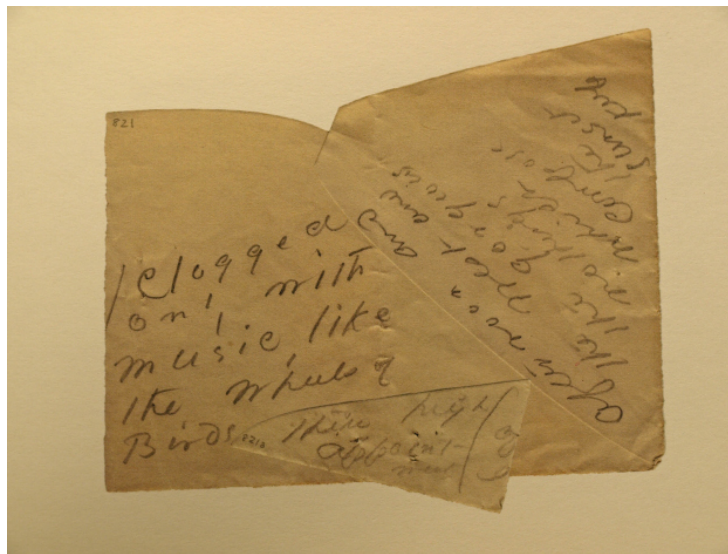 821
Clogged
only with
music, like
the Wheels of
Birds.
afternoon and
the West and
the gorgeous
nothings
which
compose
the
sunset
keep
821a
their high
appoint-
ment